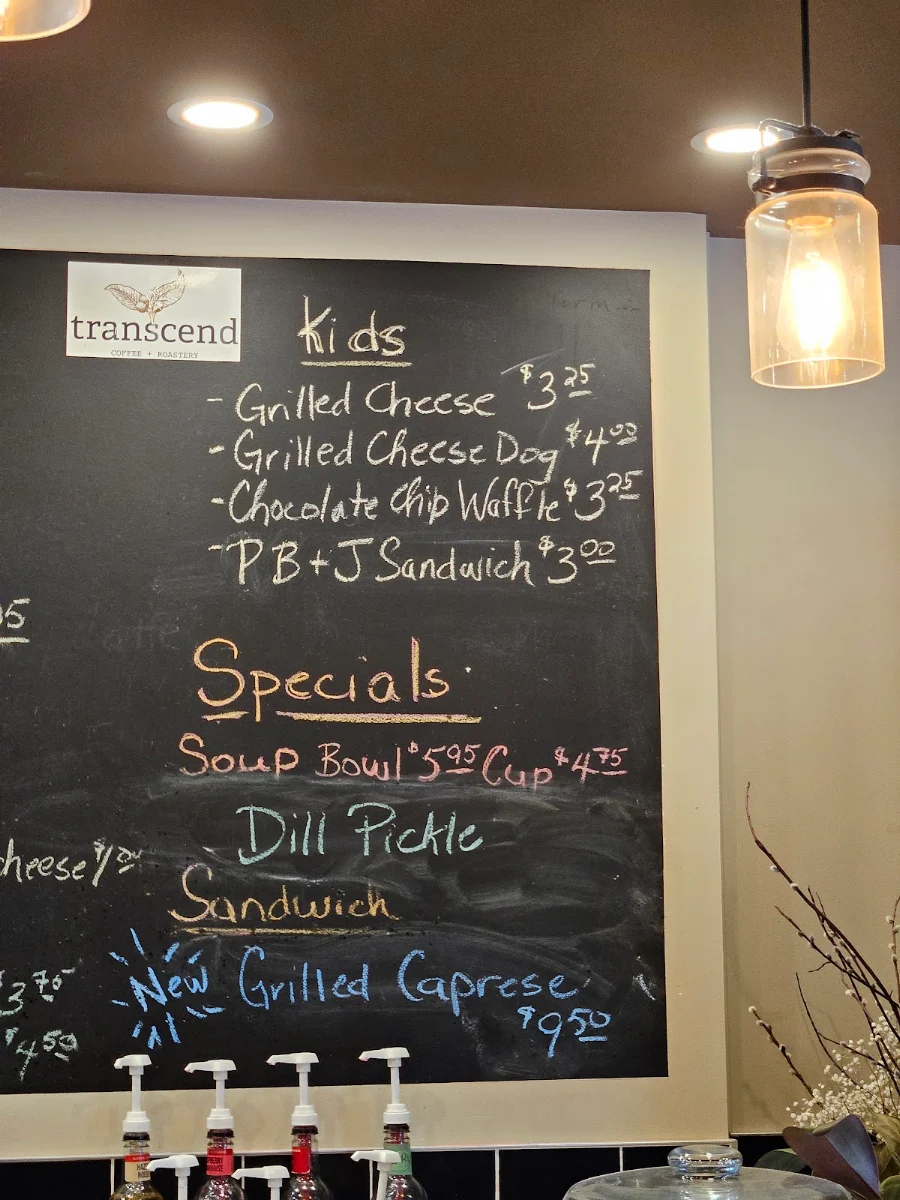 transcend
COFFEE + ROASTERY
Kids
- Grilled Cheese $3.25
- Grilled Cheese Dog $4.00
- Chocolate Chip Waffle $3.25
- PB+J Sandwich $3.00
95
Specials
Soup Bowl $5.95 Cup $4.75
Dill Pickle
cheese $1.00
Sandwich
New Grilled Caprese
$9.50
$3.75
$4.50